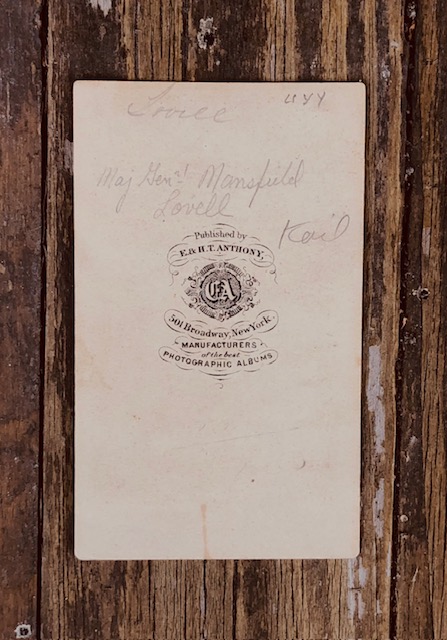 Lovell
Maj Gen'l Mansfield
Lovell
Kail
Published by
E. & H.T. ANTHONY,
EA
501 Broadway, New York.
MANUFACTURERS
of the best
PHOTOGRAPHIC ALBUMS